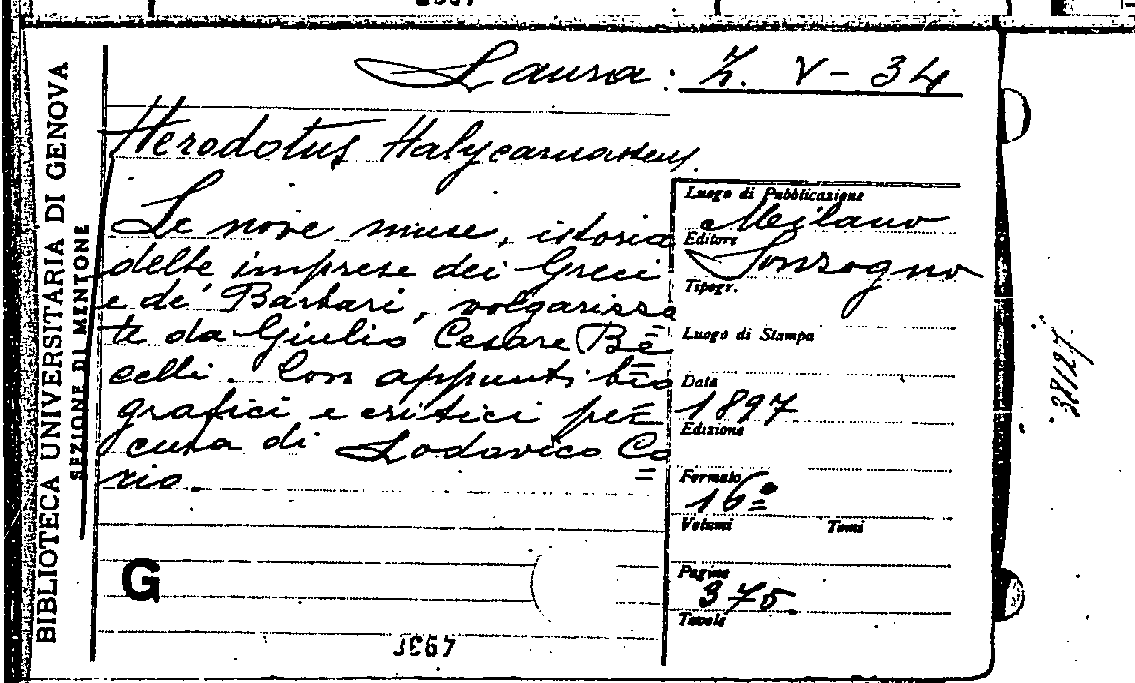 BIBLIOTECA UNIVERSITARIA DI GENOVA
SEZIONE DI MENTONE
Laura: Z. V - 34
Herodotus Halycarnasseus.
Le nove muse, istoria
delle imprese dei Greci
e de' Barbari, volgarizza
te da Giulio Cesare Be=
celli. Con appunti bio
grafici e critici per
cura di Lodovico Co=
rio.
Luogo di Pubblicazione
Milano
Editore
Sonzogno
Tipogr.
Luogo di Stampa
Data
1897
Edizione
Formato
16º
Volumi Tomi
Pagine
375.
Tavole
G
38127